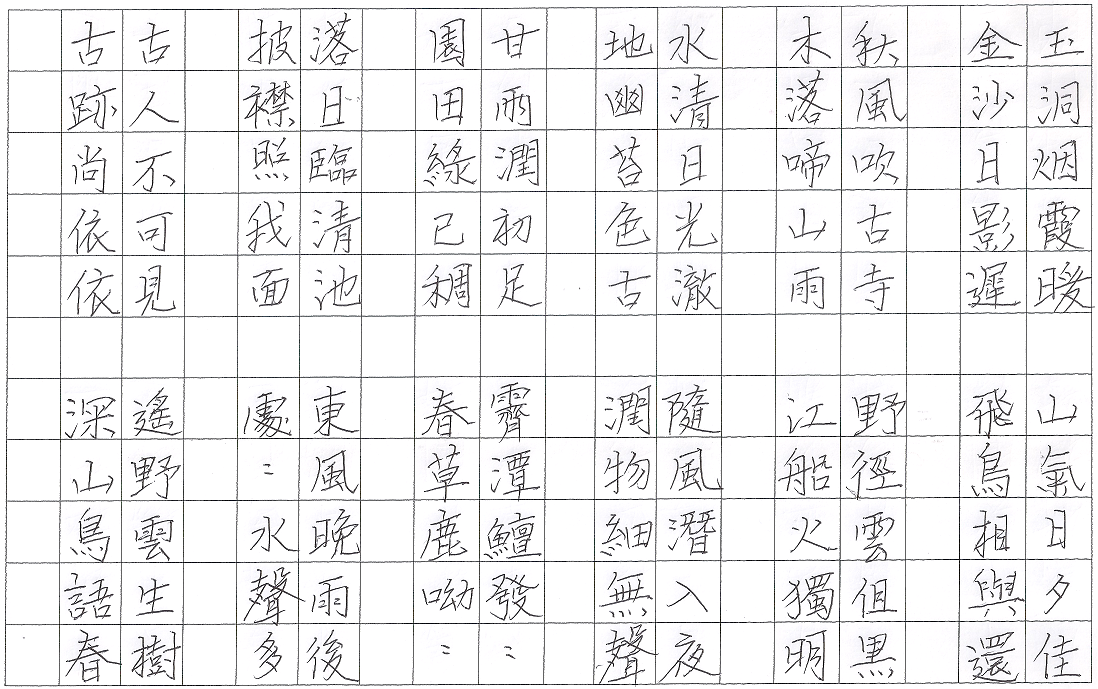 玉洞烟霞暖
金沙日影遲
秋風吹古寺
木落啼山雨
水清日光澈
地幽苔色古
甘雨潤初足
園田綠已稠
落日臨清池
披襟照我面
古人不可見
古跡尚依依
山氣日夕佳
飛鳥相與還
野徑雲但黑
江船火獨明
隨風潛入夜
潤物細無聲
霽潭鱣發〻
春草鹿呦〻
東風晚雨後
處〻水聲多
遙野雲生樹
深山鳥語春